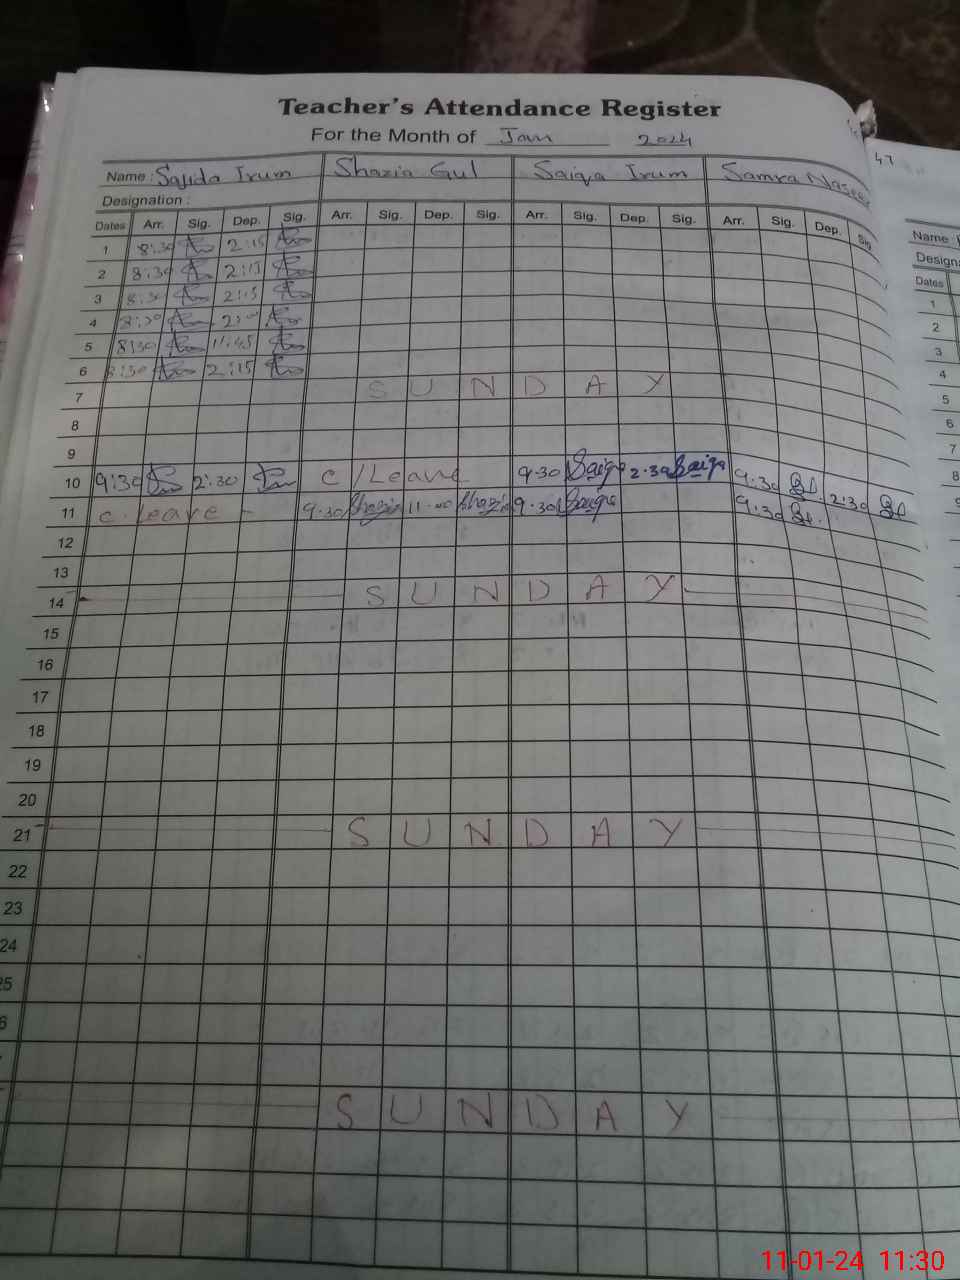 Teacher's Attendance Register
For the Month of Jan 2024
47
Name : Sajida Irum Shazia Gul Saiqa Irum Samra Naseer
Designation :
Dates Arr. Sig. Dep. Sig. Arr. Sig. Dep. Sig. Arr. Sig. Dep. Sig. Arr. Sig. Dep. Sig.
1 8:30 2:15
2 8:30 2:15
3 8:30 2:15
4 8:30 2:00
5 8:30 11:45
6 8:30 2:15
7 SUNDAY
8
9
10 9:30 2:30 C/Leave 9.30 Saiqa 2.30 Saiqa 9.30 2:30
11 C.Leave - 9.30 Shazia 11.00 Shazia 9.30 Saiqa 9.30
12
13
14 SUNDAY
15
16
17
18
19
20
21 SUNDAY
22
23
24
25
6
SUNDAY
Name :
Design
Dates
1
2
3
4
5
6
7
8
9
11-01-24 11:30